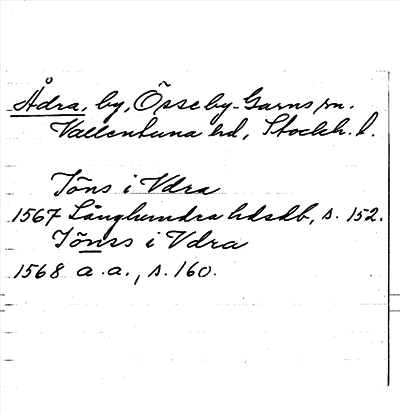 Ådra, by, Össeby-Garns sn.
Vallentuna hd, Stockh. l.
Töns i Vdra
1567 Långhundra hdsdb, s. 152.
Tönss i Vdra
1568 a.a., s. 160.